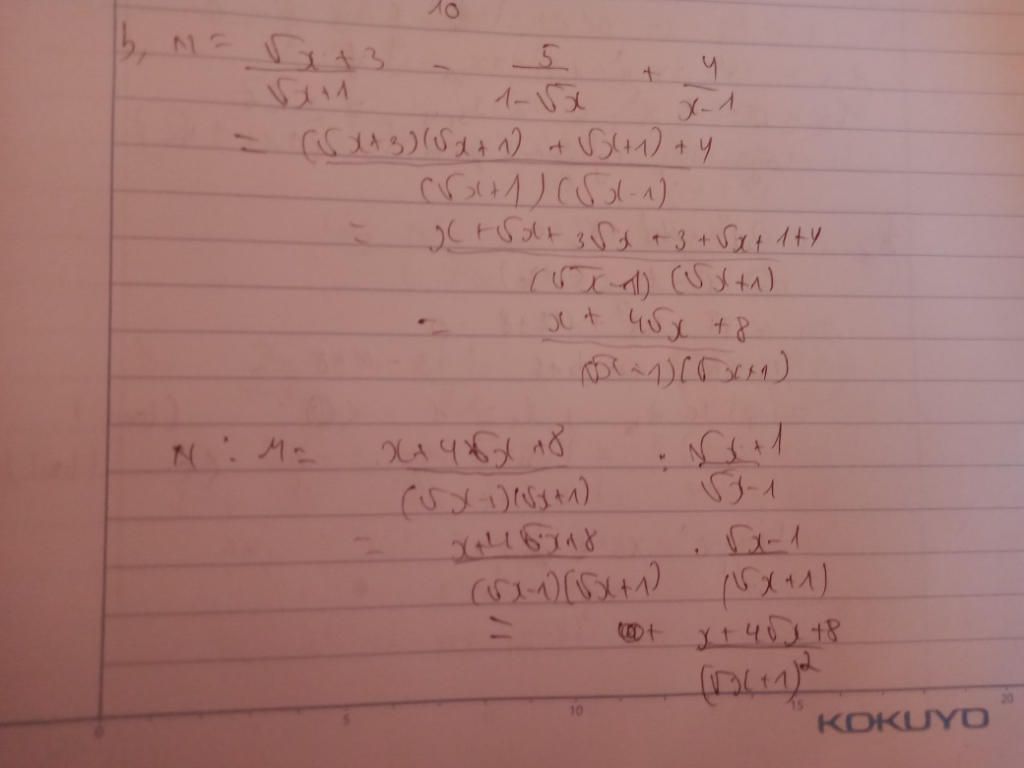 10
b, M = (√x + 3)/(√x + 1) - 5/(1 - √x) + 4/(x - 1)
= ((√x + 3)(√x + 1) + √x + 1) + 4)/((√x + 1)(√x - 1))
= (x + √x + 3√x + 3 + √x + 1 + 4)/((√x - 1)(√x + 1))
= (x + 4√x + 8)/((√x - 1)(√x + 1))
N : M = (x + 4√x + 8)/((√x - 1)(√x + 1)) : (√x + 1)/(√x - 1)
= (x + 4√x + 8)/((√x - 1)(√x + 1)) . (√x - 1)/(√x + 1)
= + (x + 4√x + 8)/(√x + 1)²
0 5 10 15 20
KOKUYO